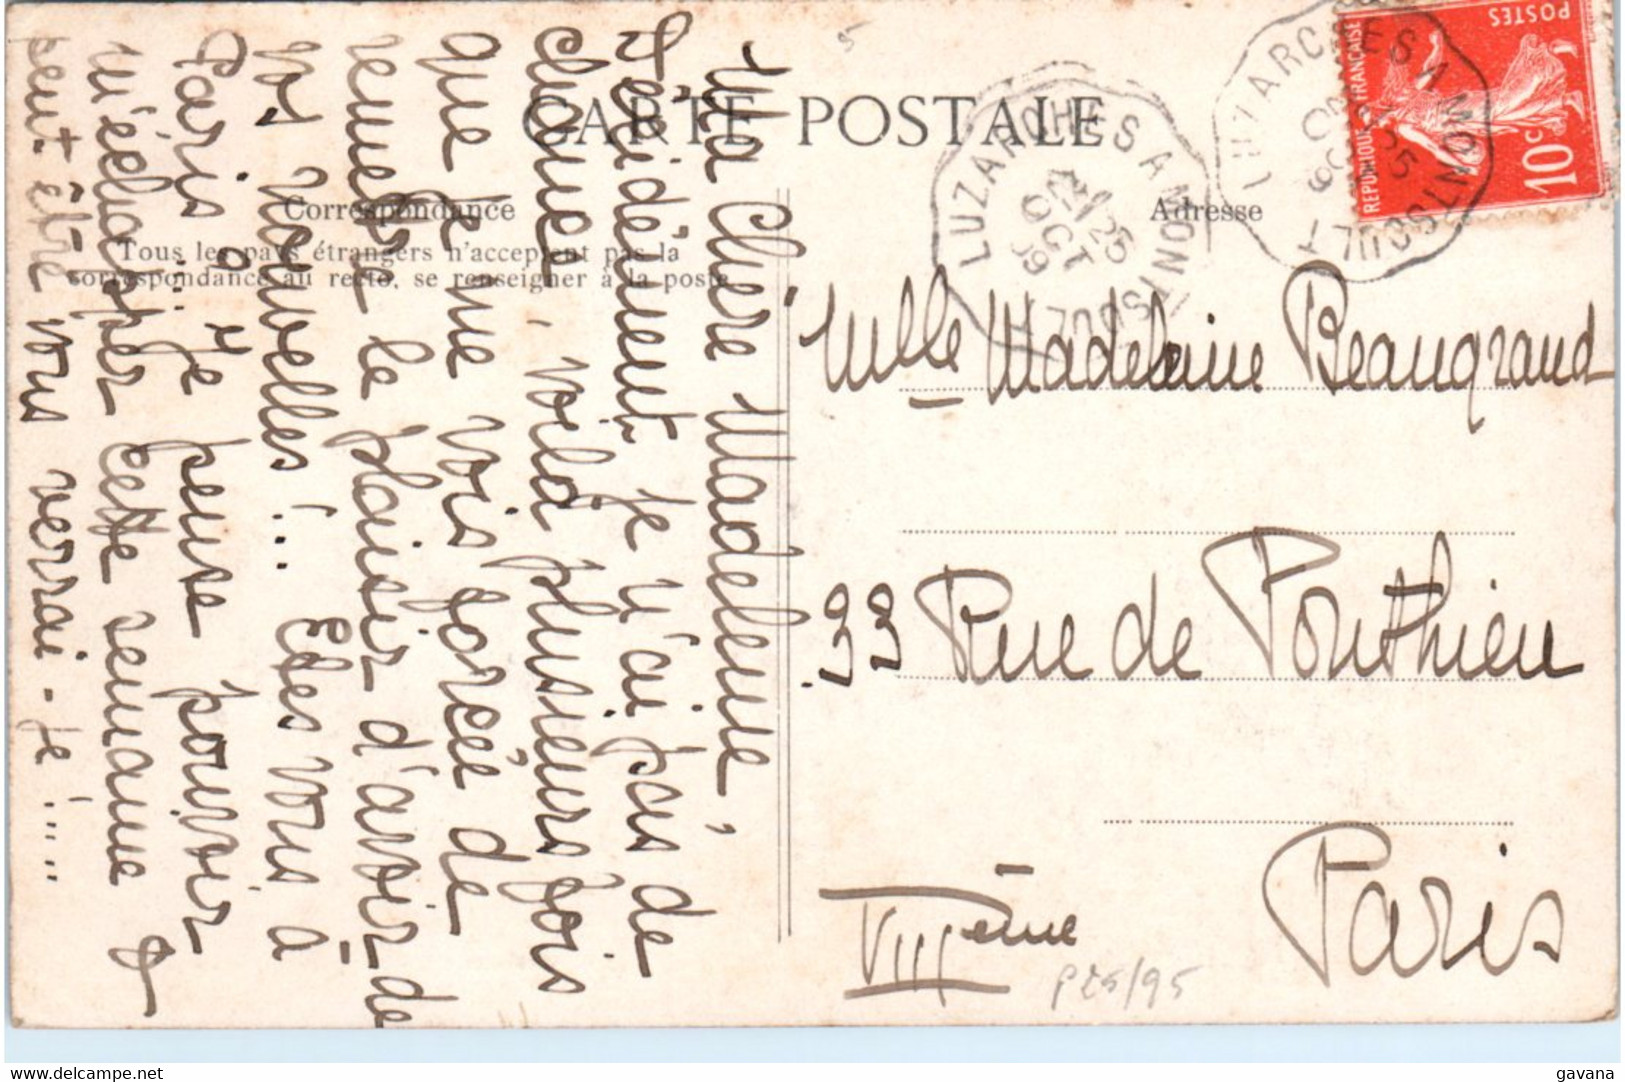 CARTE POSTALE
Correspondance
Tous les pays étrangers n'acceptent pas la
correspondance au recto, se renseigner à la poste
Adresse
Ma Chère Madeleine,
Décidément, je n'ai pas de
chance, voilà plusieurs fois
que je me vois forcée de
remettre le plaisir d'avoir de
vos nouvelles !... Etes vous à
Paris ?... Je pense pouvoir
m'échapper cette semaine &
peut-être vous verrai-je !....
Mlle Madeleine Beaugrand
33 Rue de Ponthieu
Paris
VIIIème
P25/95
LUZARCHES A MONTSOULT
25
OCT
09
LUZARCHES A MONTSOULT
25
OCT
09
REPUBLIQUE FRANÇAISE
POSTES
10c
delcampe.net
gavana